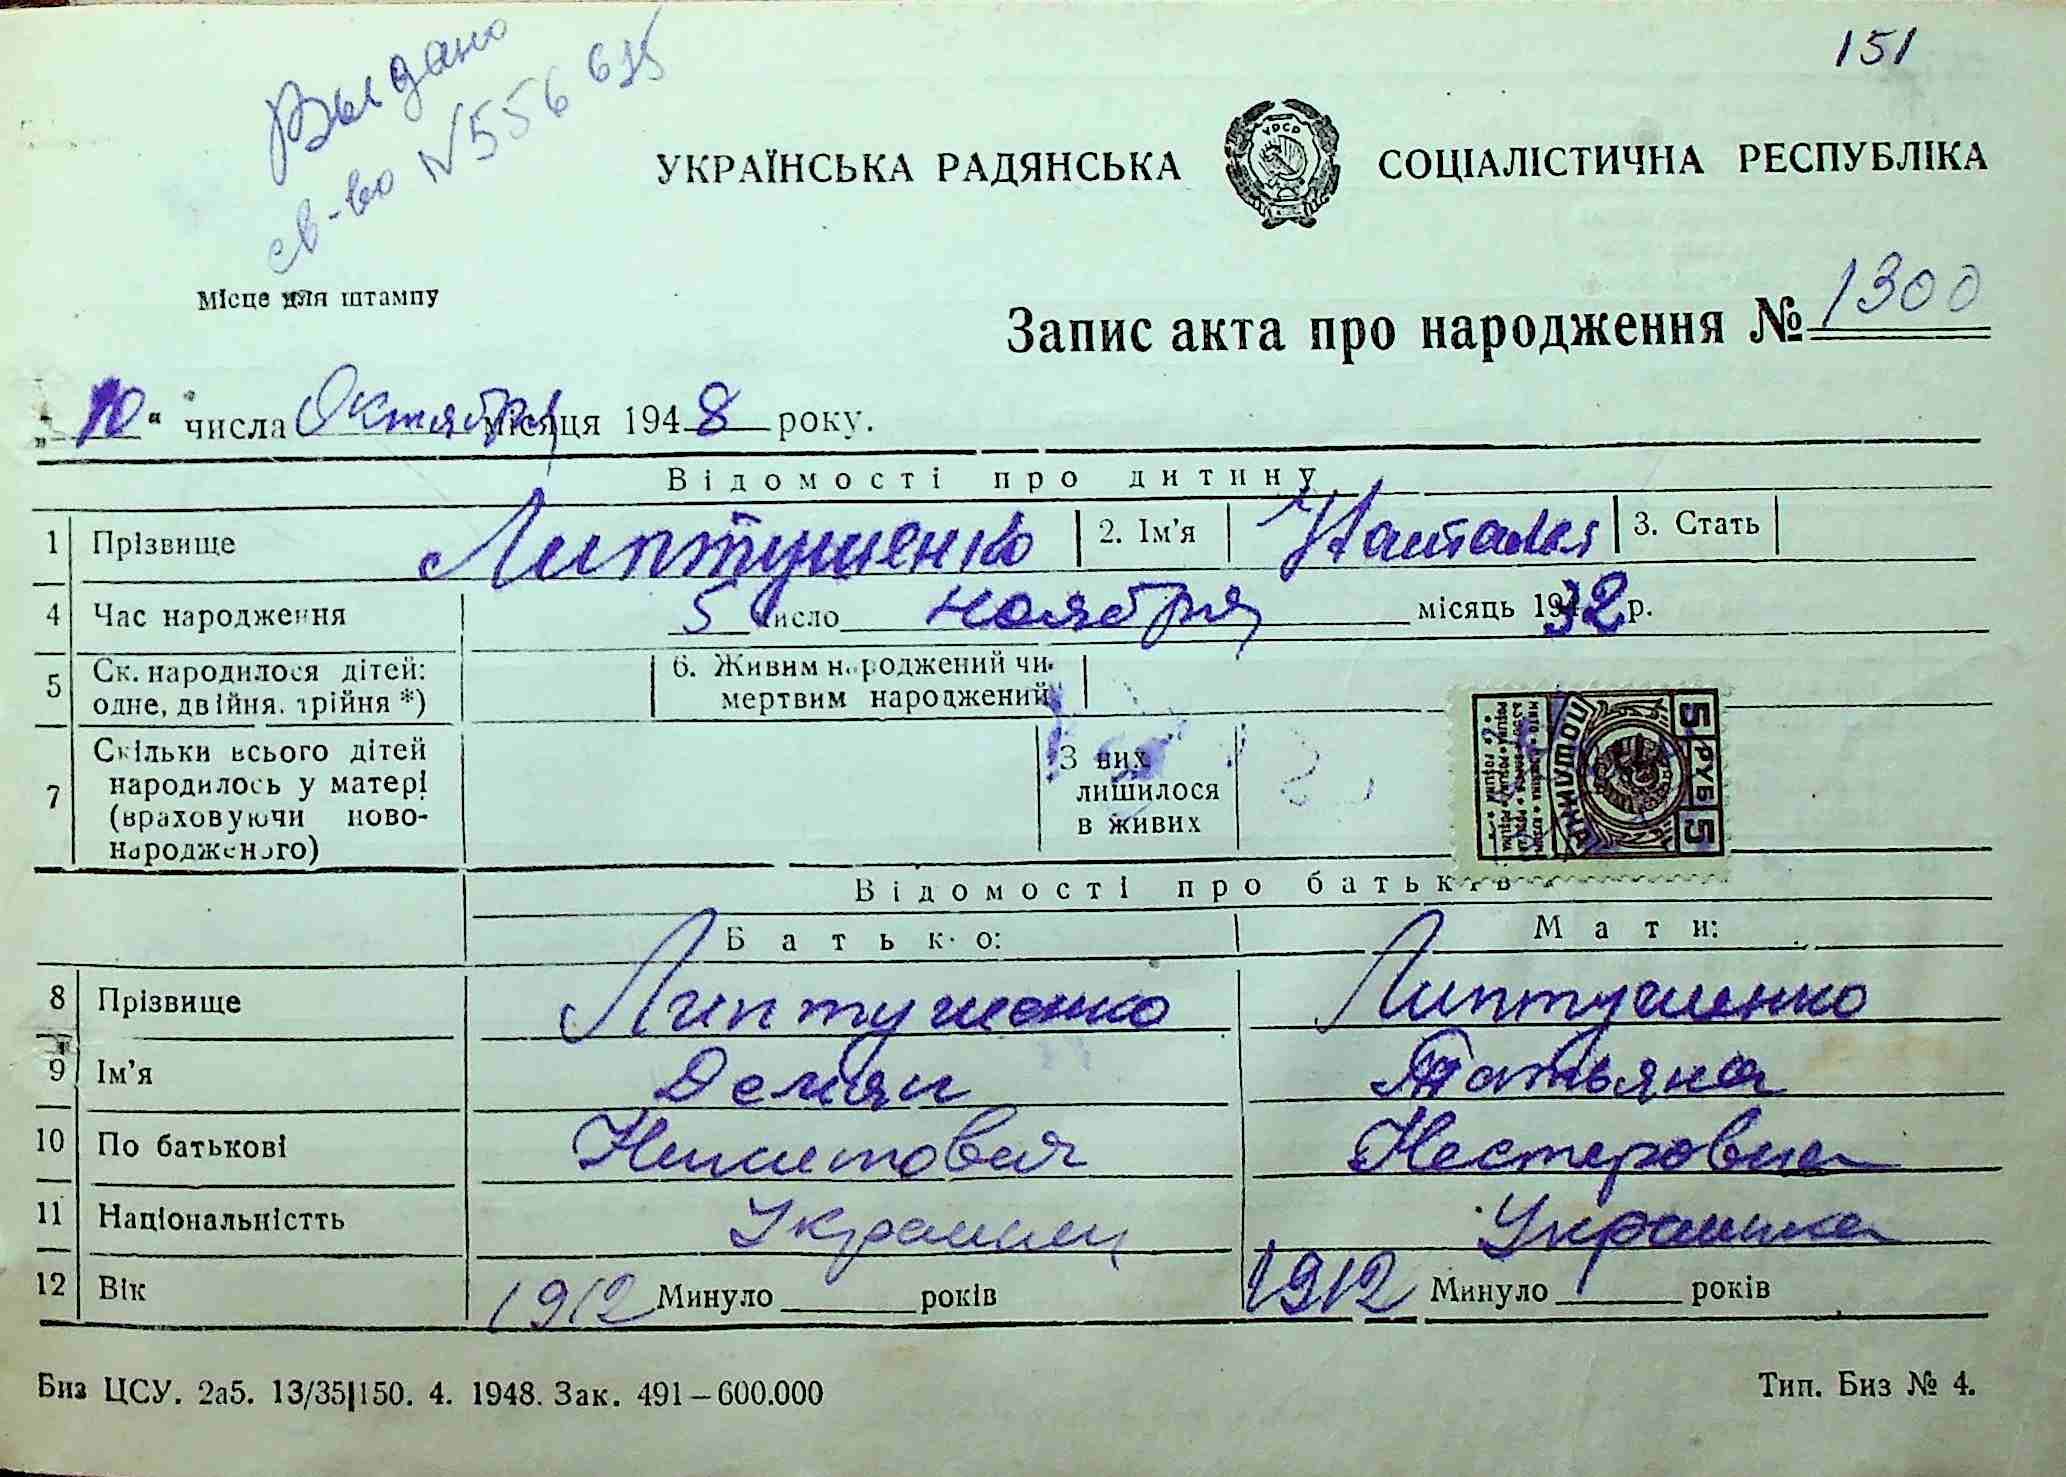 151
Выдано
св-во N 556 635
УКРАЇНСЬКА РАДЯНСЬКА СОЦІАЛІСТИЧНА РЕСПУБЛІКА
УРСР
Місце для штампу
Запис акта про народження № 1300
„10“ числа Октября місяця 1948 року.
Відомості про дитину
1 Прізвище Липтушенко 2. Ім'я Наталья 3. Стать
4 Час народження 5 число ноября місяць 1932 р.
5 Ск. народилося дітей: одне, двійня, трійня *) 6. Живим народжений чи мертвим народжений
7 Скільки всього дітей народилось у матері (враховуючи новонародженого) З них лишилося в живих
5 РУБ 5
ПОШЛИНА
Відомості про батьків
Батько: Мати:
8 Прізвище Липтушенко Липтушенко
9 Ім'я Демян Татьяна
10 По батькові Никитович Нестеровна
11 Національністть Украинец Украинка
12 Вік 1912 Минуло років 1912 Минуло років
Биз ЦСУ. 2а5. 13/35|150. 4. 1948. Зак. 491–600.000 Тип. Биз № 4.